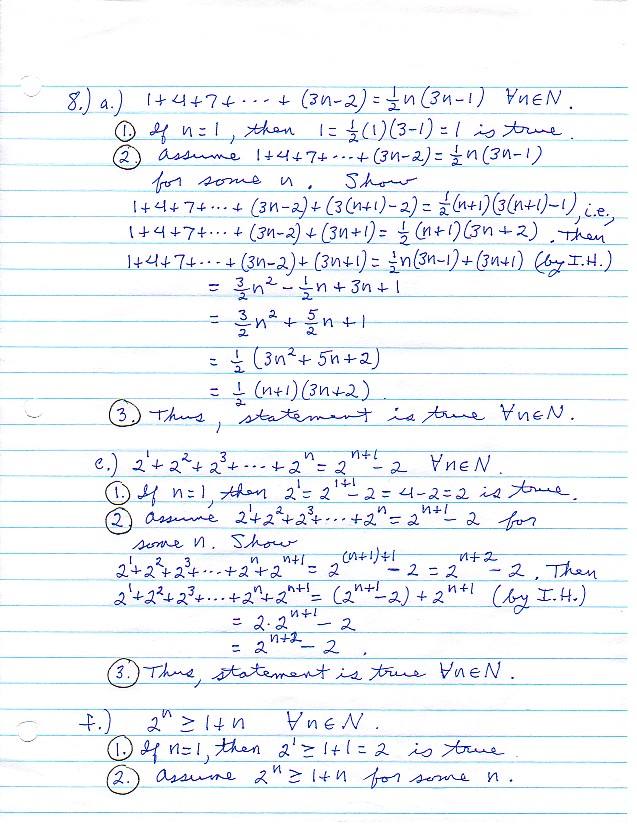 8.) a.) 1+4+7+⋯+(3n-2) = ½n(3n-1) ∀n∈N.
① If n=1, then 1 = ½(1)(3-1) = 1 is true.
② Assume 1+4+7+⋯+(3n-2) = ½n(3n-1)
for some n. Show
1+4+7+⋯+(3n-2)+(3(n+1)-2) = ½(n+1)(3(n+1)-1), i.e.,
1+4+7+⋯+(3n-2)+(3n+1) = ½(n+1)(3n+2). Then
1+4+7+⋯+(3n-2)+(3n+1) = ½n(3n-1)+(3n+1) (by I.H.)
= 3/2 n² - ½n + 3n + 1
= 3/2 n² + 5/2 n + 1
= ½(3n²+5n+2)
= ½(n+1)(3n+2).
③ Thus, statement is true ∀n∈N.
c.) 2¹+2²+2³+⋯+2ⁿ = 2ⁿ⁺¹ - 2 ∀n∈N.
① If n=1, then 2¹ = 2¹⁺¹ - 2 = 4-2 = 2 is true.
② Assume 2¹+2²+2³+⋯+2ⁿ = 2ⁿ⁺¹ - 2 for
some n. Show
2¹+2²+2³+⋯+2ⁿ+2ⁿ⁺¹ = 2⁽ⁿ⁺¹⁾⁺¹ - 2 = 2ⁿ⁺² - 2. Then
2¹+2²+2³+⋯+2ⁿ+2ⁿ⁺¹ = (2ⁿ⁺¹-2) + 2ⁿ⁺¹ (by I.H.)
= 2·2ⁿ⁺¹ - 2
= 2ⁿ⁺² - 2.
③ Thus, statement is true ∀n∈N.
f.) 2ⁿ ≥ 1+n ∀n∈N.
① If n=1, then 2¹ ≥ 1+1 = 2 is true.
② Assume 2ⁿ ≥ 1+n for some n.